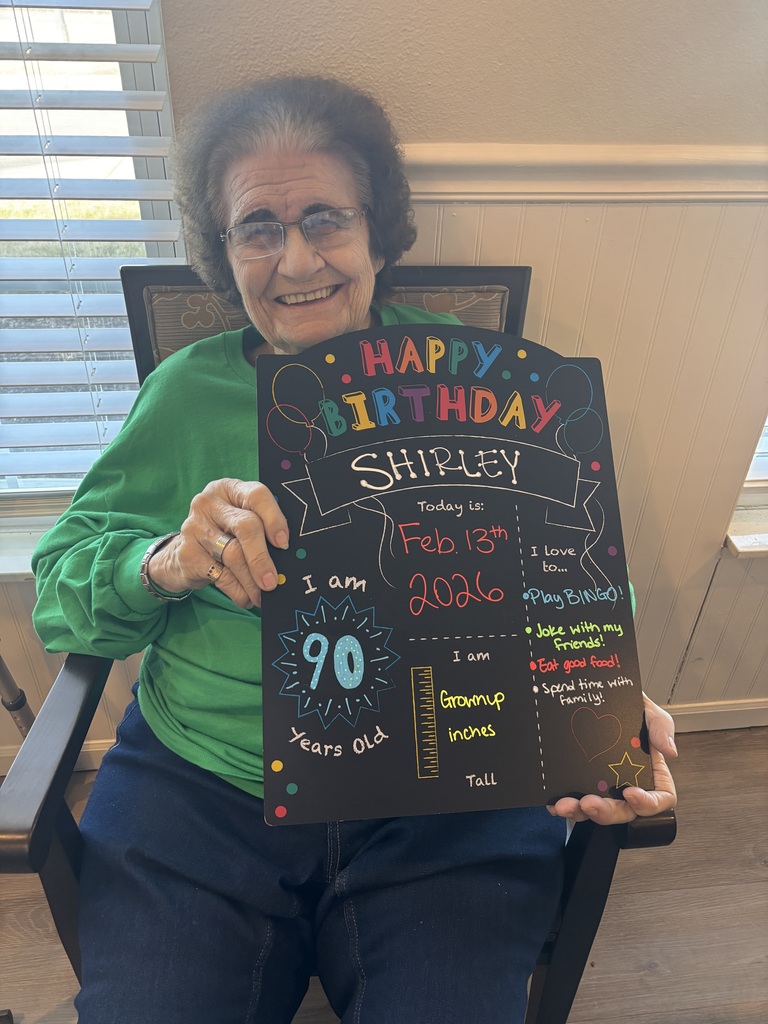 HAPPY
BIRTHDAY
SHIRLEY
Today is:
Feb. 13th
2026
I am
90
Years Old
I am
Grownup
inches
Tall
I love
to...
•Play BINGO!
• Joke with my
friends!
• Eat good food!
• Spend time with
family!